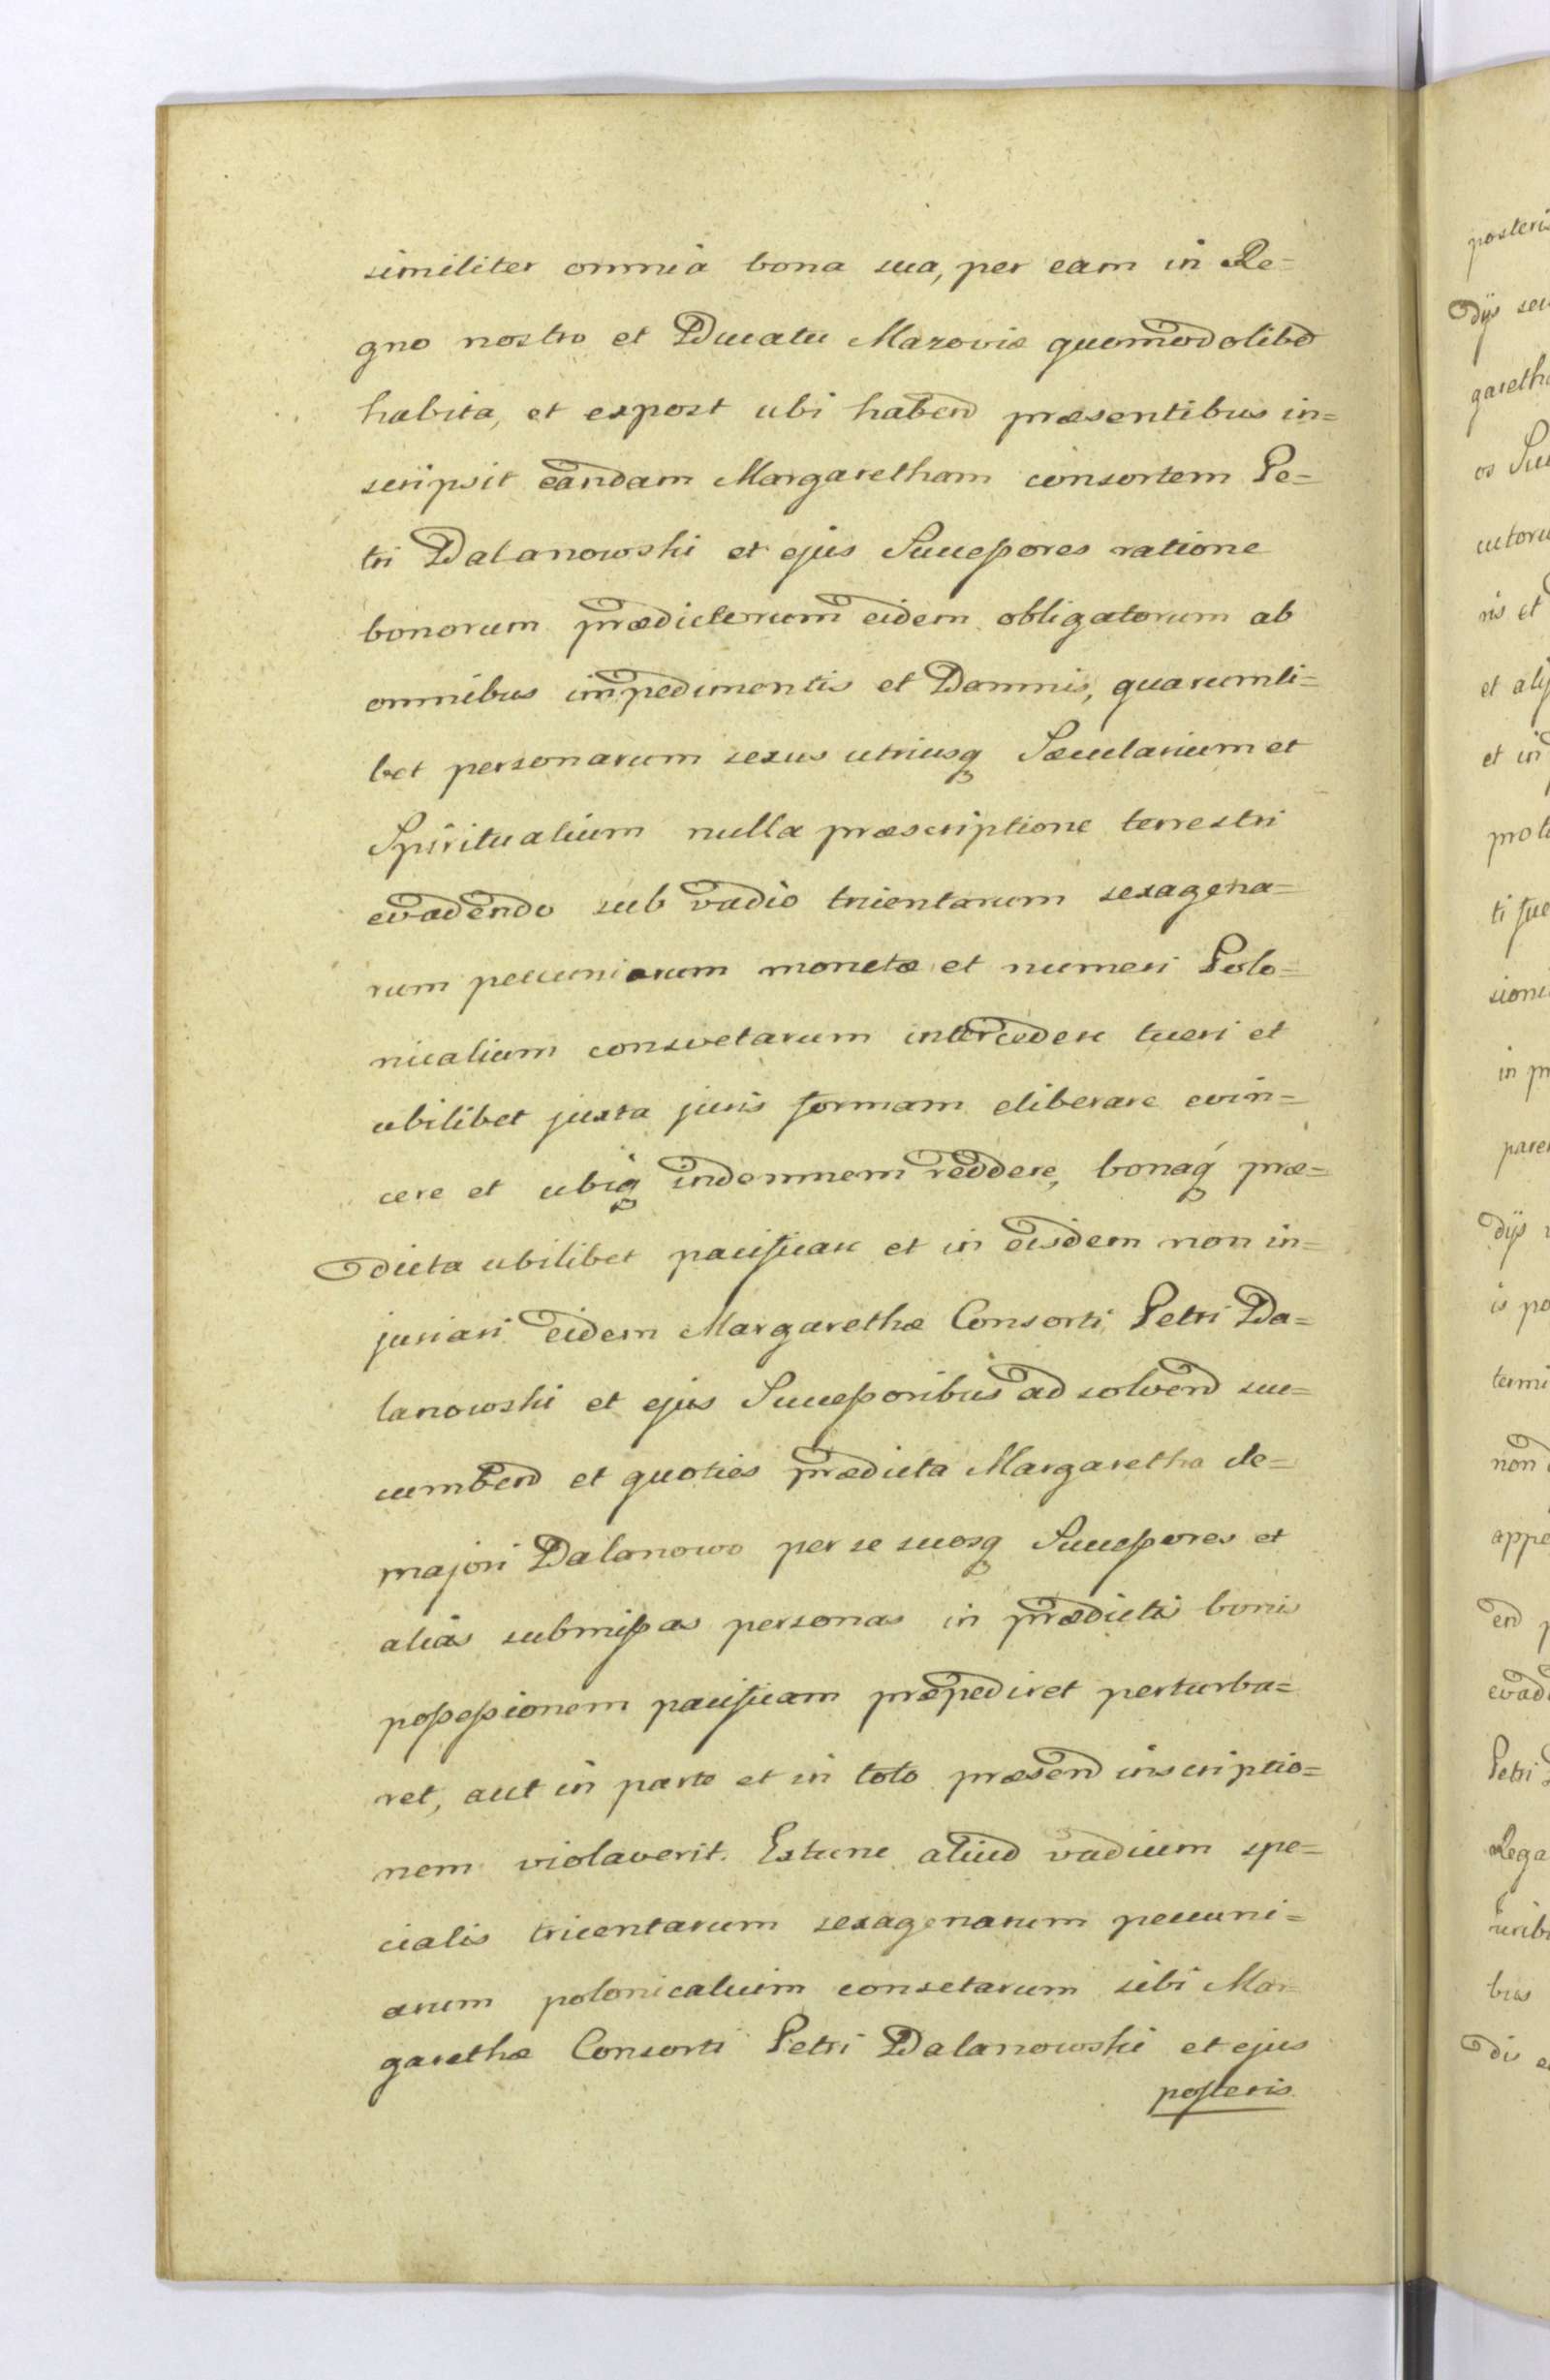 similiter omnia bona sua, per eam in Re=
gno nostro et Ducatu Mazoviæ quomodolibd
habita, et expost ubi habend præsentibus in=
scripsit eandam Margaretham consortem Pe=
tri Dalanowski et ejus Succeßores ratione
bonorum prædictorum eidem obligatorum ab
omnibus impedimentis et Damnis, quarumli=
bet personarum sexus utriusq Sæcularium et
Spiritualium nulla præscriptione terrestri
evadendo sub vadio tricentarum sexagena=
rum pecuniarum monetæ et numeri Polo=
nicalium consvetarum intercedere tueri et
ubilibet juxta juris formam eliberare evin=
cere et ubiq indemnem reddere, bonaq præ=
dicta ubilibet pacificare et in eisdem non in=
juriari eidem Margarethæ Consorti Petri Da=
lanowski et ejus Succeßoribus ad solvend suc=
cumbend et quoties prædicta Margaretha de=
majori Dalanowo per se suosq Succeßores et
alias submißas personas in prædictis bonis
poßeßionem pacificam præpediret perturba=
ret, aut in parte et in toto præsend inscriptio=
nem violaverit. Extunc aliud vadium spe=
cialis tricentarum sexagenarum pecuni=
arum polonicalium consetarum sibi Mar=
garethæ Consorti Petri Dalanowski et ejus
posteris
posteris
dijs seu
gareth
os Suc
cutoru
ris et
et alij
et in
prote
ti fue
sioni
in p
pare
dijs
is po
termi
non
appe
end p
evad
Petri
Rega
uribi
bus
dis e